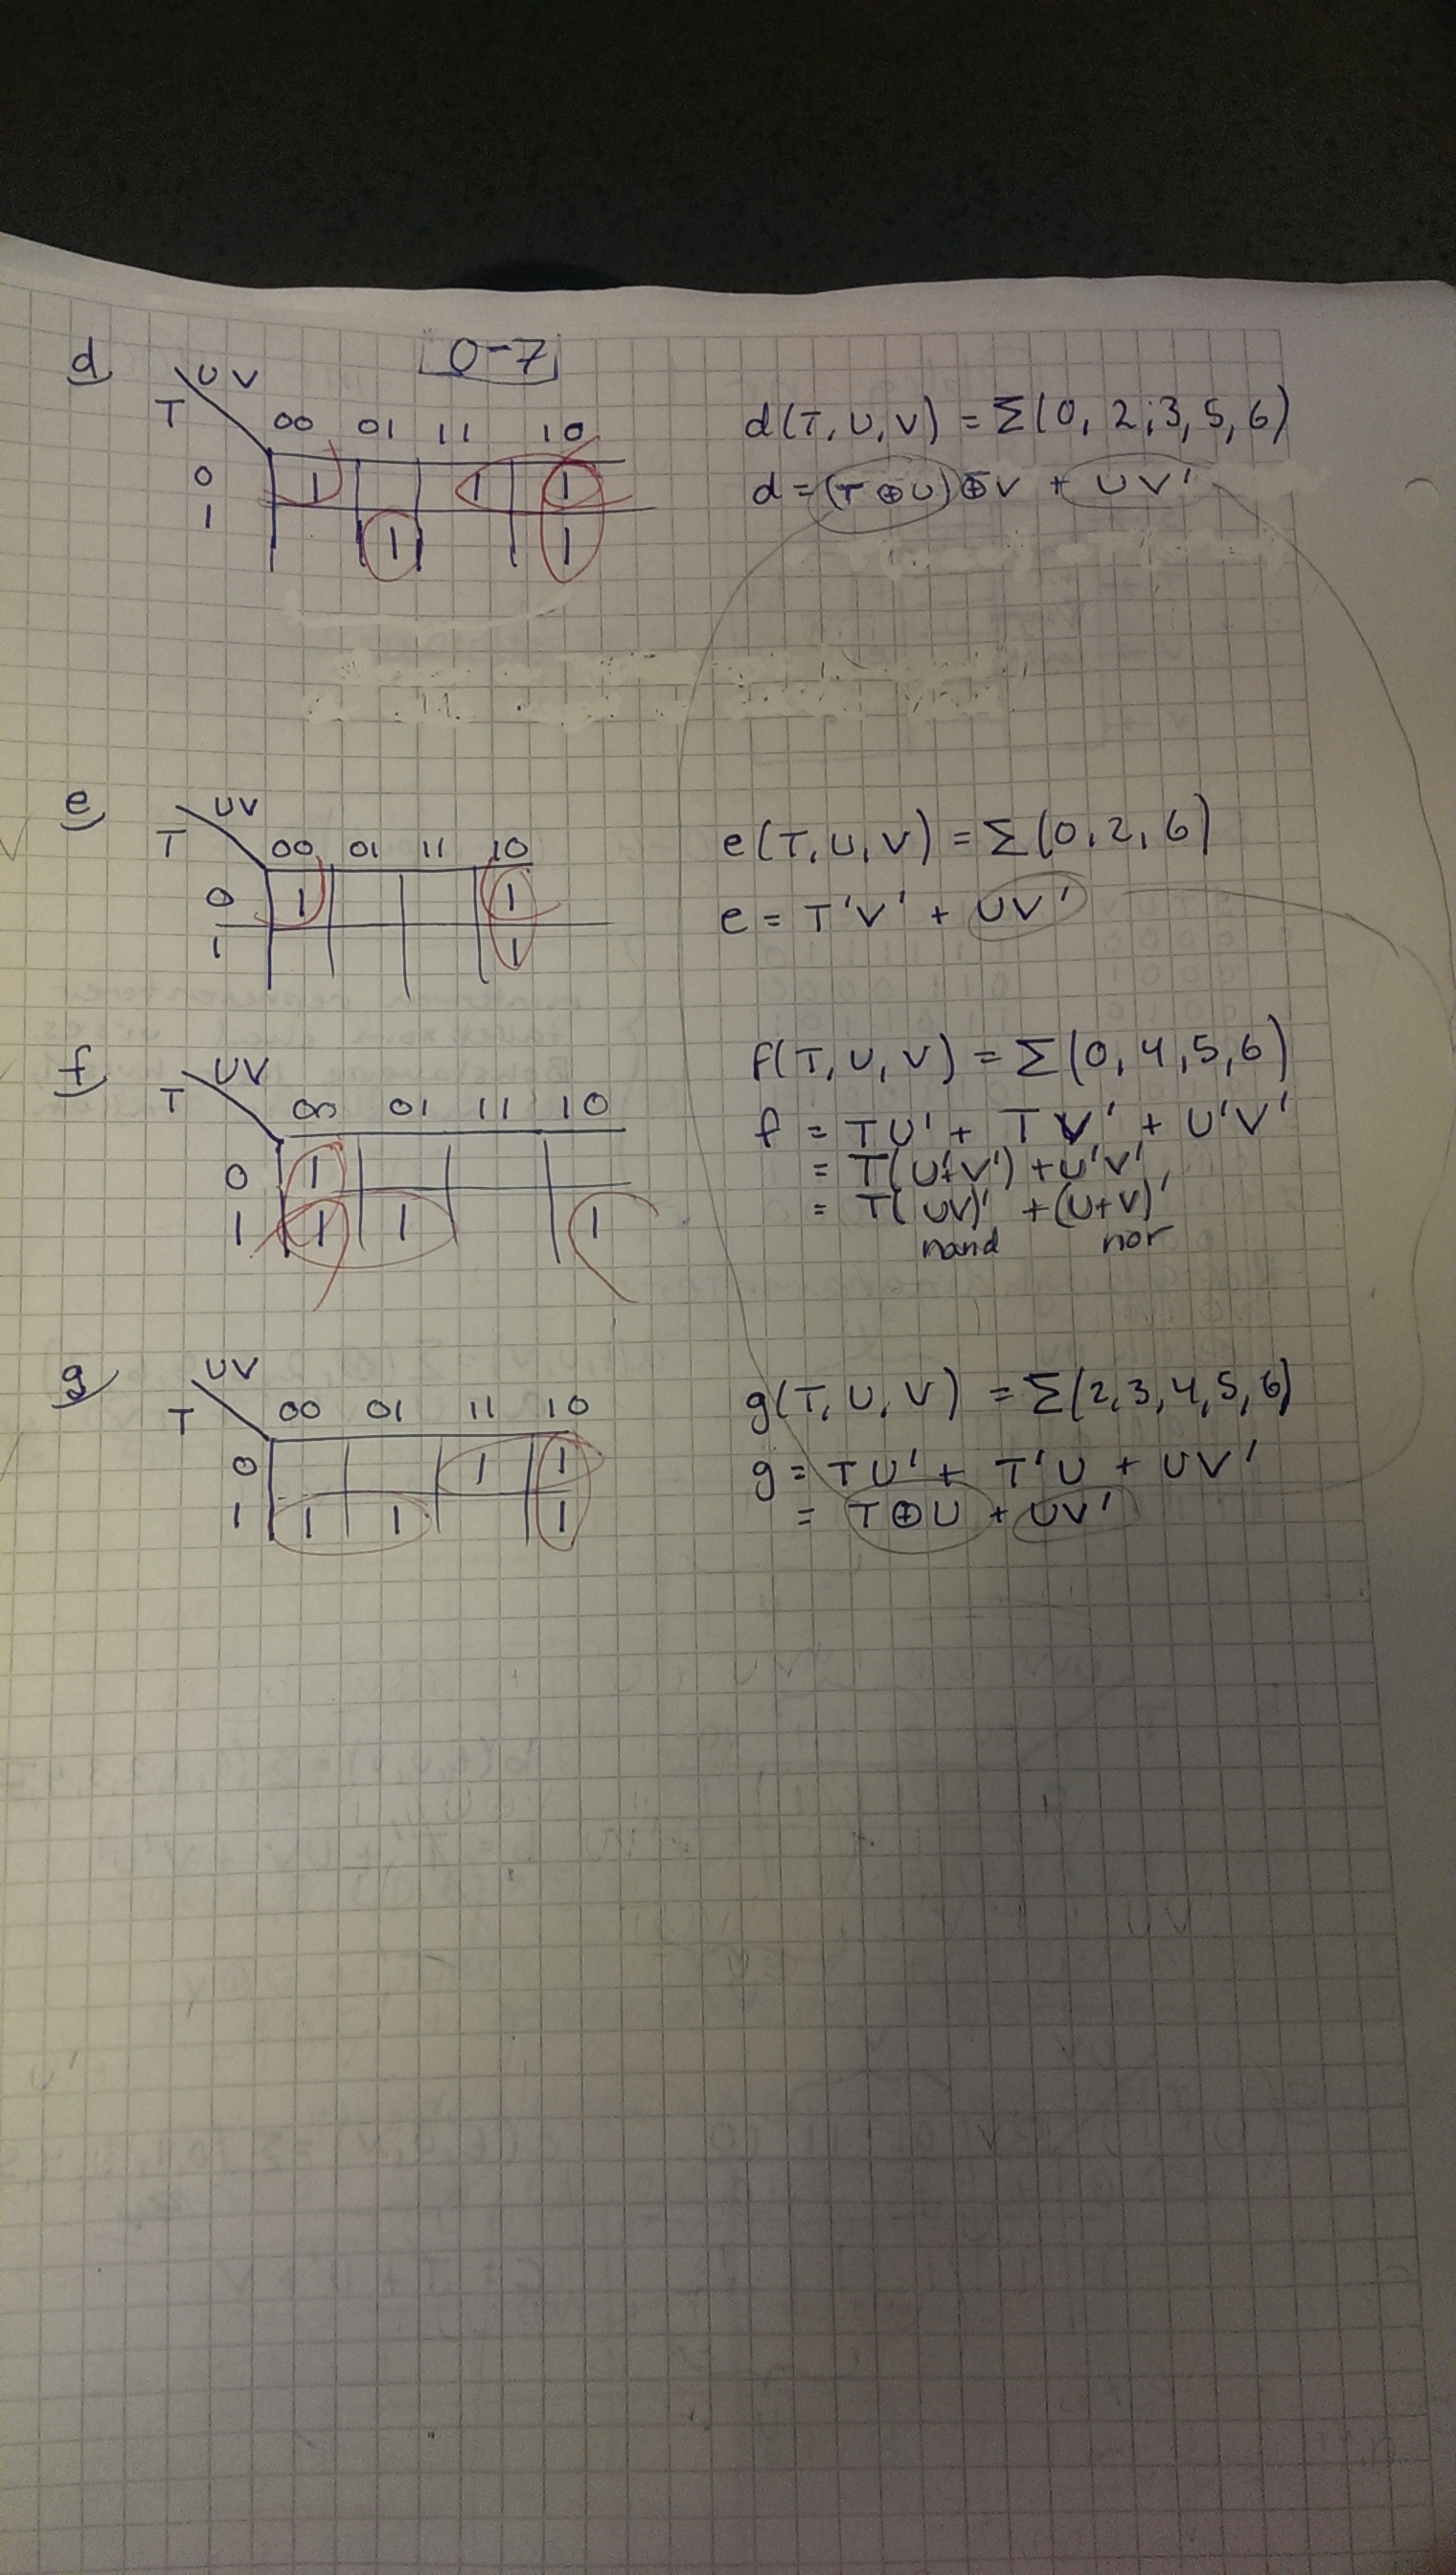 0-7
d
UV
T
00 01 11 10
0 1 1 1
1 1 1
d(T, U, V) = Σ(0, 2, 3, 5, 6)
d = (T ⊕ U) ⊕ V + UV'
e
UV
T
00 01 11 10
0 1 1
1 1
e(T, U, V) = Σ(0, 2, 6)
e = T'V' + UV'
f
UV
T
00 01 11 10
0 1
1 1 1 1
f(T, U, V) = Σ(0, 4, 5, 6)
f = TU' + TV' + U'V'
= T(U'+V') + U'V'
= T(UV)' + (U+V)'
nand nor
g
UV
T
00 01 11 10
0 1 1
1 1 1 1
g(T, U, V) = Σ(2, 3, 4, 5, 6)
g = TU' + T'U + UV'
= T⊕U + UV'